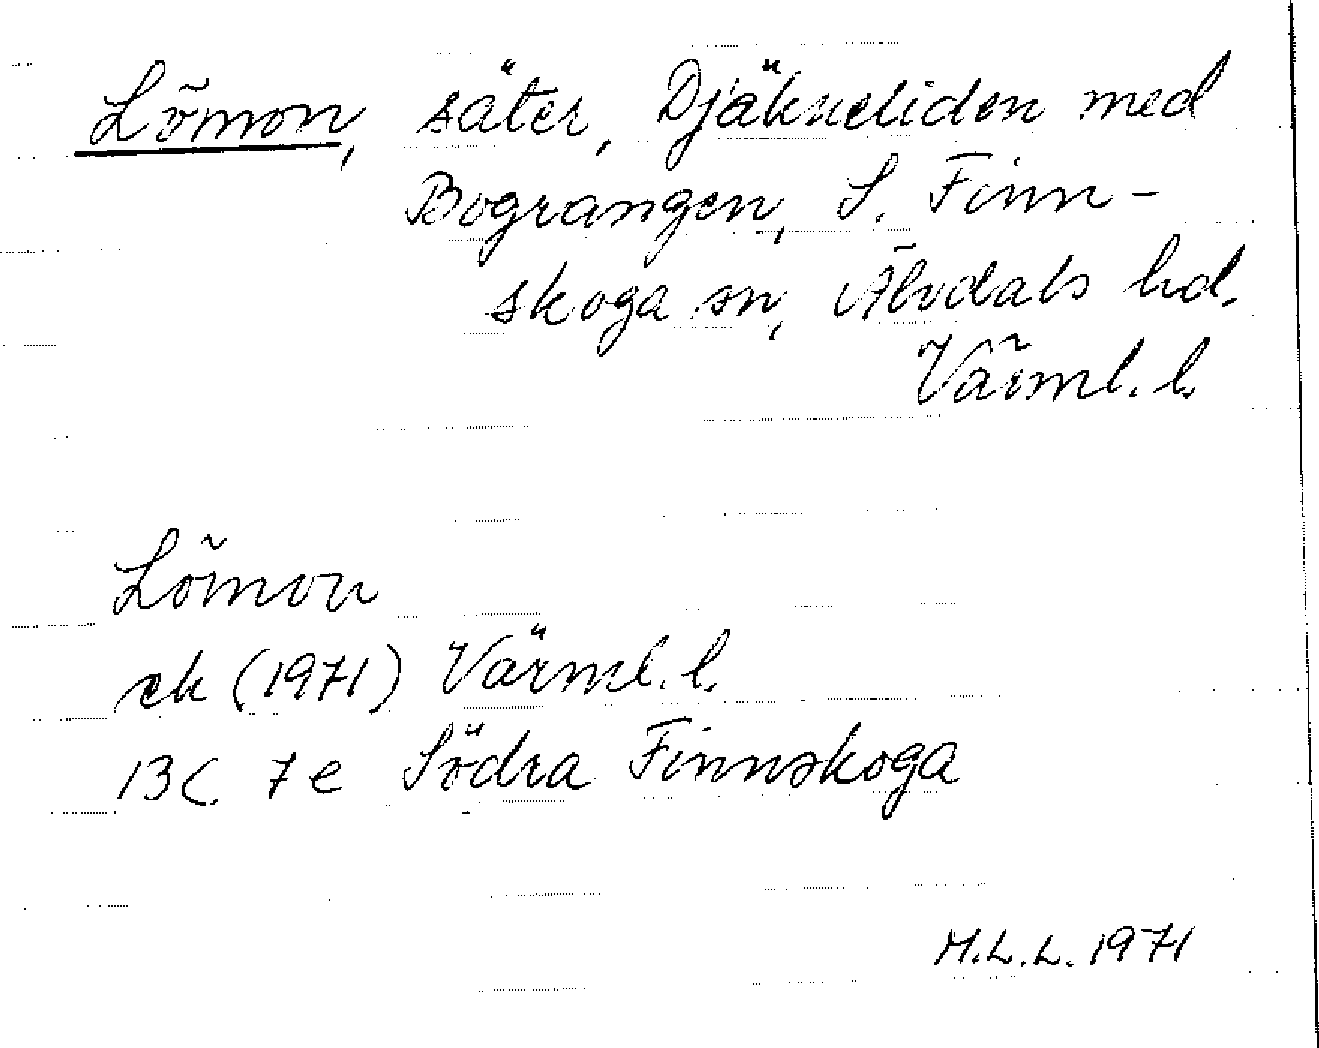 Lömon, säter, Djäkneliden med
Bograngen, S. Finn-
skoga sn, Älvdals hd.
Värml. l.
Lömon
ek (1971) Värml. l.
13C 7e Södra Finnskoga
M.L.L. 1971